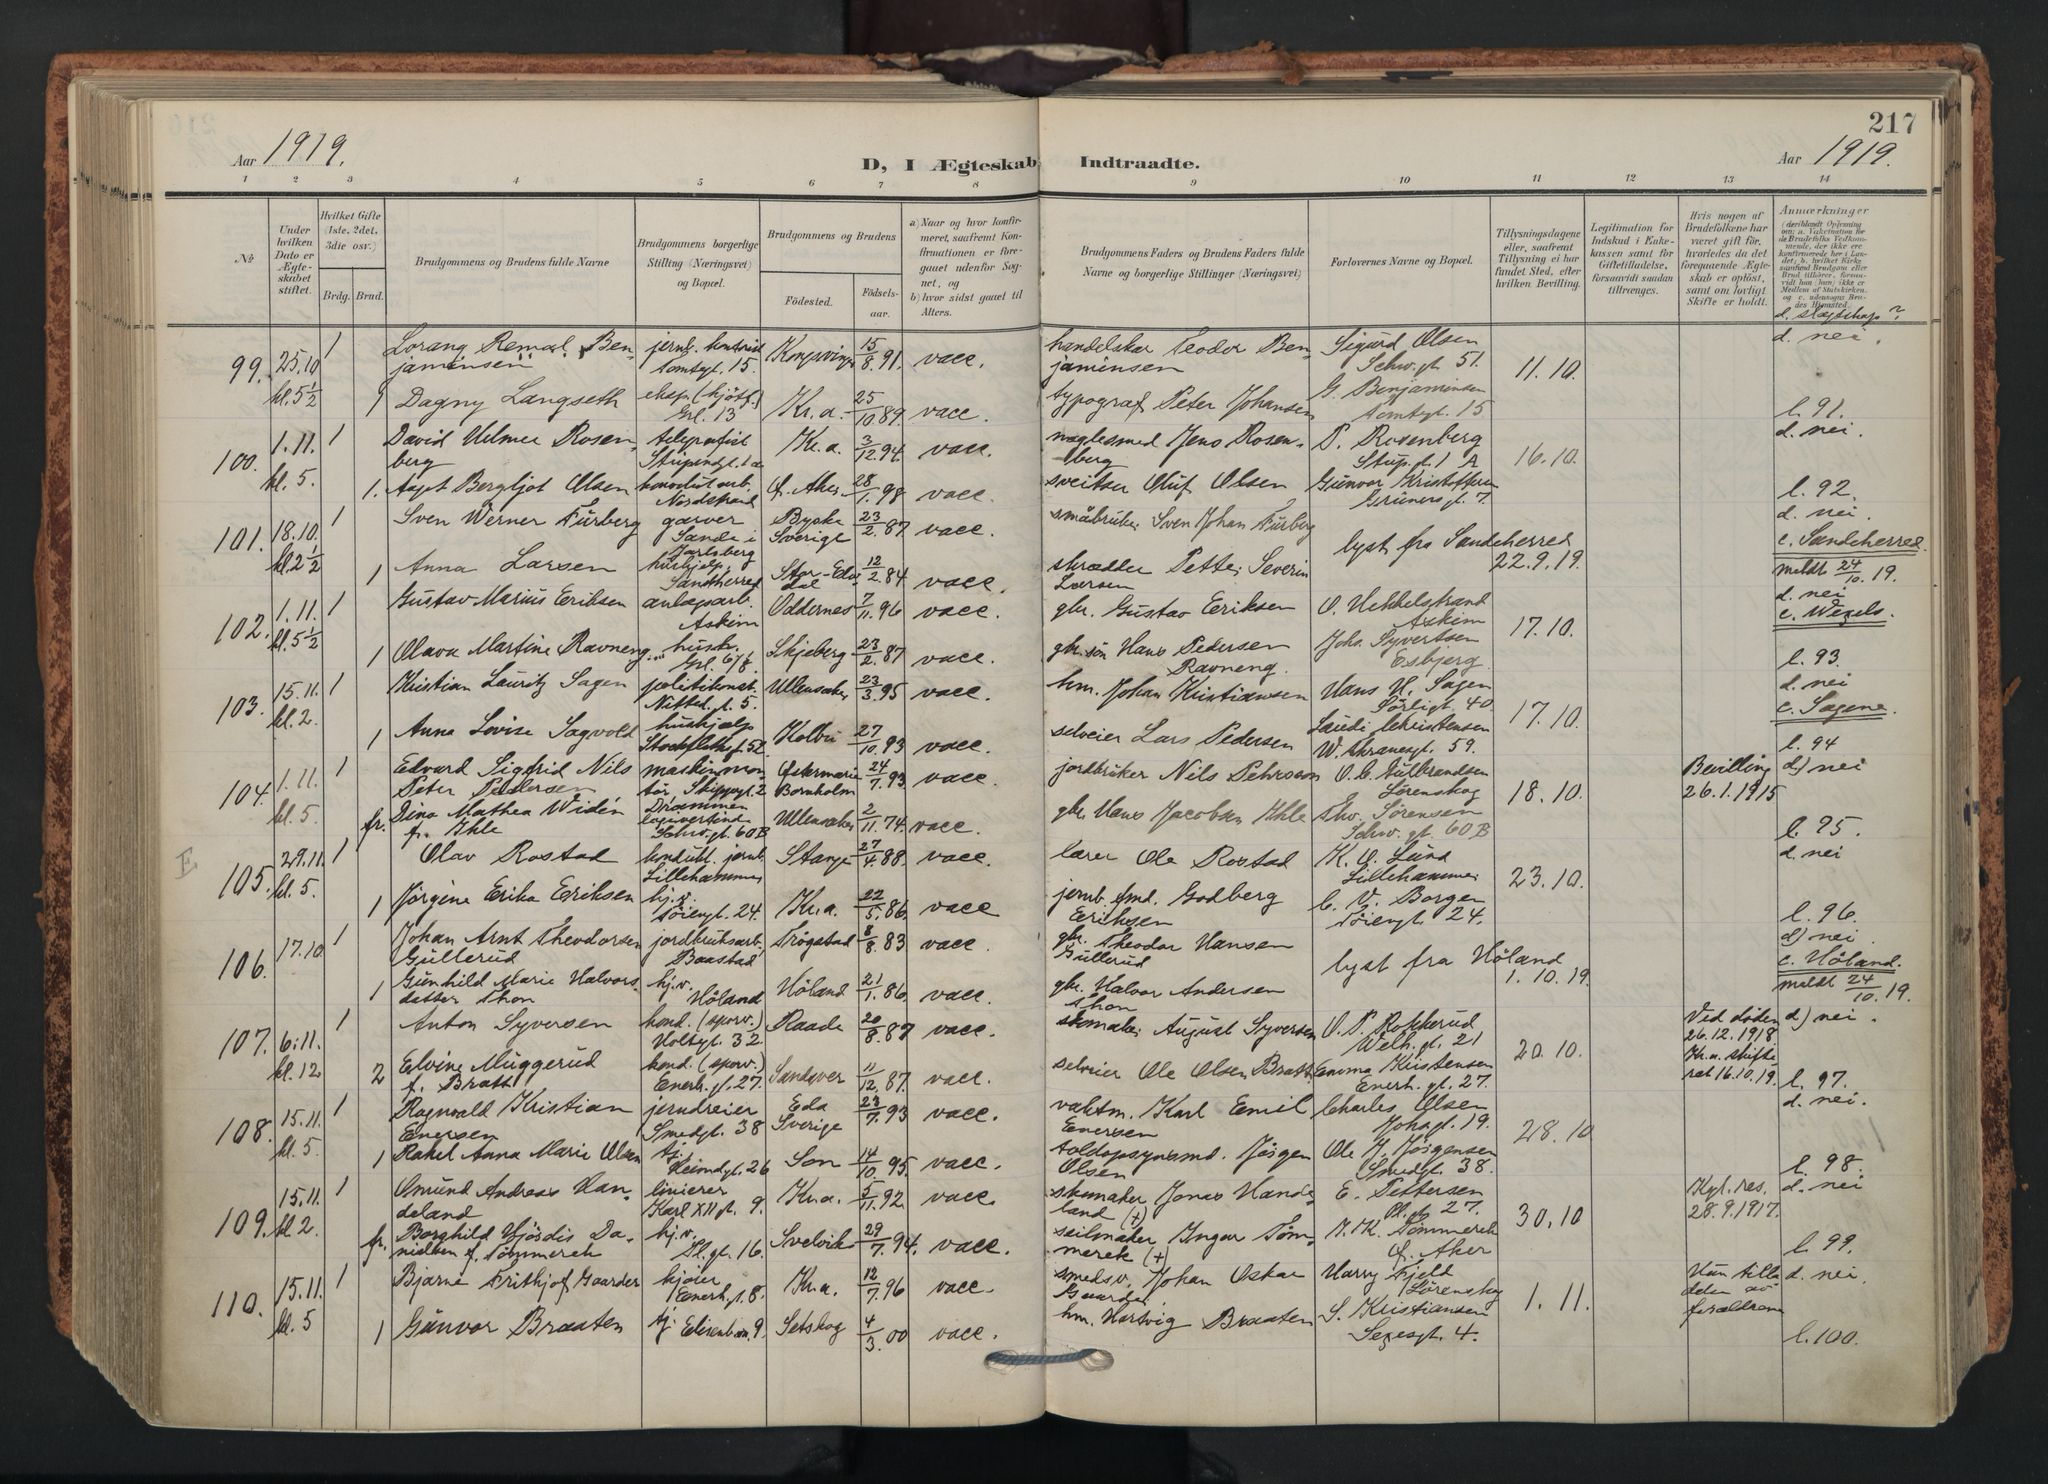 217
Aar 1919.
D, I Ægteskab Indtraadte.
Aar 1919.
1 2 3 4 5 6 7 8 9 10 11 12 13 14
No
Under hvilken Dato er Ægteskabet stiftet.
Hvilket Gifte (1ste, 2det, 3die osv.)
Brdg. Brud.
Brudgommens og Brudens fulde Navne
Brudgommens borgerlige Stilling (Næringsvei) og Bopæl.
Brudgommens og Brudens
Födested. Födselsaar.
a) Naar og hvor konfirmeret, saafremt Konfirmationen er foregaaet udenfor Sognet, og
b) hvor sidst gaaet til Alters.
Brudgommens Faders og Brudens Faders fulde Navne og borgerlige Stillinger (Næringsvei)
Forlovernes Navne og Bopæl.
Tillysningsdagene eller, saafremt Tillysning ei har fundet Sted, efter hvilken Bevilling.
Legitimation for Indskud i Enkekassen samt for Giftetilladelse, forsaavidt saadan tiltrænges.
Hvis nogen af Brudefolkene har været gift før, hvorledes da det foregaaende Ægteskab er opløst, samt om lovligt Skifte er holdt.
Anmærkninger
d. slægtskap?
99. 25.10 kl. 5½ 1 Lorang Remal Benjaminsen jernb. kontorist Tomtegt. 15. Kongsvinger 15/8.91. vacc. handelskar Teodor Benjaminsen Sigurd Olsen Schw. gt. 51. 11.10. d. nei.
1 Dagny Langseth eksp. (kjøtf.) Grl. 13 Kr.a. 25/10 89. vacc. typograf Peter Johansen G. Benjaminsen Tomtegt. 15 l. 91.
100. 1.11. kl. 5. 1 David Hilmer Rosenberg telegrafist Stupendgt. 1 a Kr.a. 3/12 94. vacc. naglesmed Jens Rosenberg P. Rosenberg Stup. gt. 1 A 16.10. d. nei.
1. Aagot Bergljot Olsen Nordstrand Ø. Aker 28/1. 98 vacc. sveitser Oluf Olsen Gunvor Kristoffersen Grüners gt. 7. l. 92.
101. 18.10. kl. 2½ 1 Sven Werner Furberg garver Sande i Jarlsberg Byske Sverige 23/2. 87 vacc. småbruker Sven Johan Furberg lyst fra Sandeherred 22.9.19. d. nei. c. Sandeherred
1 Anna Larsen hushjelp Sandeherred Stor-Edvdal 12/2. 84 vacc. skrædder Petter Severin Larsen meldt 24/10. 19.
102. 1.11. kl. 5½ 1 Gustav Marius Eriksen anlægsarb. Askim Oddernes 7/11. 96 vacc. gbr. Gustav Eriksen O. Hebbelstrand Askim 17.10. d. nei c. Wexels
1 Olava Martine Ravneng hushj. Grl. 67/8. Skjeberg 23/2. 87 vacc. gbr.sön Hans Pedersen Ravneng. Johs. Syvertsen Esbjerg. l. 93.
103. 15.11. kl. 2. 1 Kristian Lauritz Sagen politikonst. Nitted. gt. 5. Ullensaker 23/3. 95 vacc. hm. Johan Kristiansen Hans H. Sagen Sørligt. 40 17.10. d. nei c. Sagene.
1 Anna Lovise Sagvold hushjælp Stockfleths gt. 52 Kolbu 27/10. 93 vacc. selveier Lars Pedersen Laudi Christensen W. Thranesgt. 59. l. 94
104. 1.11. kl. 5. 1 Edvard Sigfrid Nils Peter Pedersen maskinmontør Skippergt. 2 Drammen Østermarie Bornholm 24/7. 93 vacc. jordbruker Nils Pehrsson O. C. Gulbrandsen Lörenskog 18.10. Bevilling 26.1.1915 d) nei
fr. Dina Mathea Widén f. Ihle Schw. gt. 60 B Ullensaker 2/11. 74. vacc. gbr. Hans Jacobsen Ihle Thv. Sørensen Schw. gt. 60 B l. 95.
E
105. 29.11. kl. 5. 1 Olav Rostad kondukt. jernb. Lillehammer Stange 27/4. 88. vacc. lærer Ole Rostad K. O. Lund Lillehammer 23.10. d. nei
1 Jörgine Erika Eriksen hj. v. Töiengt. 24. Kr.a. 22/5. 86. vacc jernb. fmd. Godberg Eriksen C. V. Borgen Töiengt. 24. l. 96.
106. 17.10 1 Johan Arnt Theodorsen Gullerud jordbruksarb. Baastad Trøgstad 8/8. 83 vacc. gbr. Theodor Hansen Gullerud lyst fra Höland 1.10.19. d) nei. c. Höland.
1 Gunhild Marie Halvorsdatter Thon hj. v. Höland Höland 21/1. 86. vacc. gbr. Halvor Andersen Thon meldt 24/10. 19.
107. 6.11. kl. 12 1 Anton Syversen kond. (sporv.) Holtegt. 32 Raade 20/8. 87 vacc. skomaker August Syversen O. P. Rokkerud Welh. gt. 21 20.10. Ved döden 26.12.1918 Kr.a. skifteret 16.10.19. d) nei.
2 Elvine Muggerud f. Bratt kond. (sporv.) Enerh. gt. 27. Sandsver 11/12. 87. vacc. selveier Ole Olsen Bratt Emma Kristensen Enerh. gt. 27. l. 97.
108. 15.11. kl. 5. 1 Ragnvald Kristian Enersen jerndreier Smedgt. 38 Eda Sverige 23/7. 93 vacc. vaktm. Karl Emil Enersen Charles Olsen Johs gt. 19. 28.10 d. nei.
1 Rakel Anna Marie Olsen tj. Heimdgt. 26 Son 14/10. 95. vacc. toldopsynsmd. Jørgen Olsen Ole H. Jørgensen Smedgt. 38. l. 98.
109. 15.11. kl. 2. 1 Omund Andreas Handeland linierer Karl XII gt. 9. Kr.a. 5/11. 92. vacc. skomaker Jonas Handeland (+) E. Pettersen Pl. gt. 27. 30.10 Kgl. res. 28.9.1917. d. nei
fr. Borghild Hjördis Danielsen f. Tømmerek hj. v. Pl. gt. 16. Svelvik 29/7. 94. vacc. seilmaker Ingar Tømmerek (+) M. K. Tømmerek Ø. Aker l. 99.
110. 15.11. kl. 5 1 Bjarne Frithjof Gaarder kjøier Enerh. gt. 8. Kr.a. 12/7. 96 vacc. smedsv. Johan Oskar Gaarder Harry Fjeld Lörenskog 1.11. Hun tilladelse av forældrene d. nei.
1 Gunvor Braaten tj. Edisenbm. 9. Setskog 4/3. 00 vacc. hm. Hartvig Braaten S. Kristiansen Sexesgt. 4. l. 100.